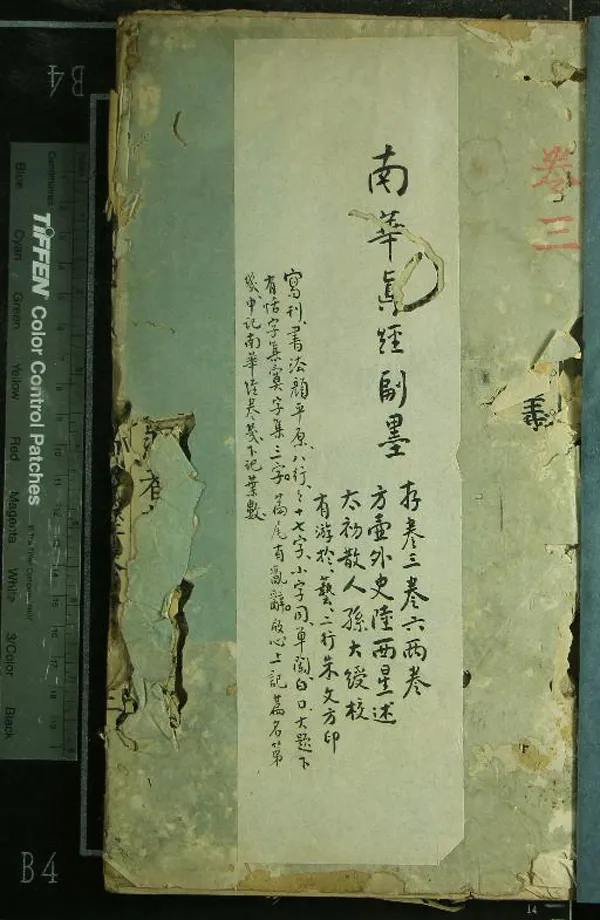 卷三
南華真經副墨
存卷三卷六兩卷
方壺外史陸西星述
太初散人孫大綬校
有游於藝、二行朱文方印
寫刊、書法顏平原、八行、行十七字、小字同、單闌白口、大題下
有恬字集寞字集三字。篇尾有亂辭。版心上記篇名第
幾、中記南華經卷幾、下記葉數
TIFFEN Color Control Patches
© The Tiffen Company, 2007
Centimetres
Blue Cyan Green Yellow Red Magenta White 3/Color Black
B4
B4
14